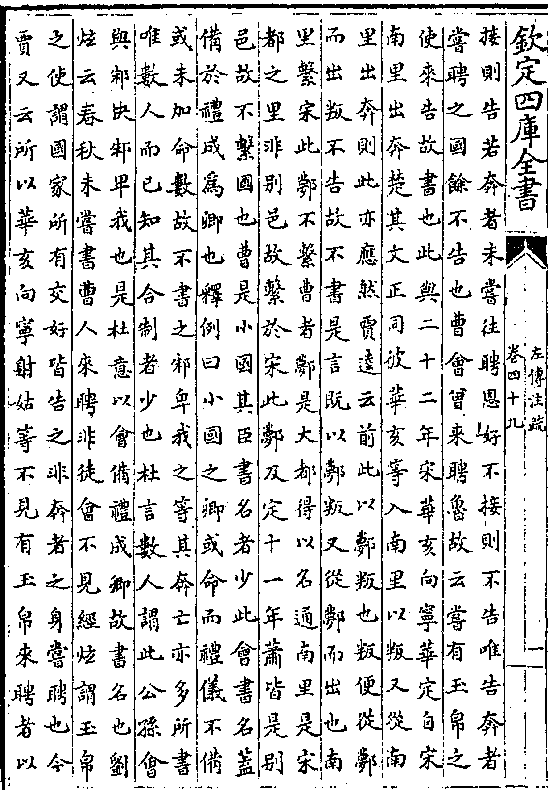 欽定四庫全書
左傳注疏
卷四十九
一
接則告若奔者未嘗往聘恩好不接則不告唯告奔者
嘗聘之國餘不告也曹會曾來聘魯故云嘗有玉帛之
使來告故書也此與二十二年宋華亥向寧華定自宋
南里出奔楚其文正同彼華亥等入南里以叛又從南
里出奔則此亦應然賈逵云前此以鄸叛也叛便從鄸
而出叛不告故不書是言既以鄸叛又從鄸而出也南
里繫宋此鄸不繫曹者鄸是大都得以名通南里是宋
都之里非別邑故繫於宋此鄸及定十一年蕭皆是別
邑故不繫國也曹是小國其臣書名者少此會書名蓋
備於禮成為卿也釋例曰小國之卿或命而禮儀不備
或未加命數故不書之邾卑我之等其奔亡亦多所書
唯數人而已知其合制者少也杜言數人謂此公孫會
與邾快邾畀我也是杜意以會備禮成卿故書名也劉
炫云春秋未嘗書曹人來聘非徒會不見經炫謂玉帛
之使謂國家所有交好皆告之非奔者之身嘗聘也今
賈又云所以華亥向寧射姑等不見有玉帛來聘者以